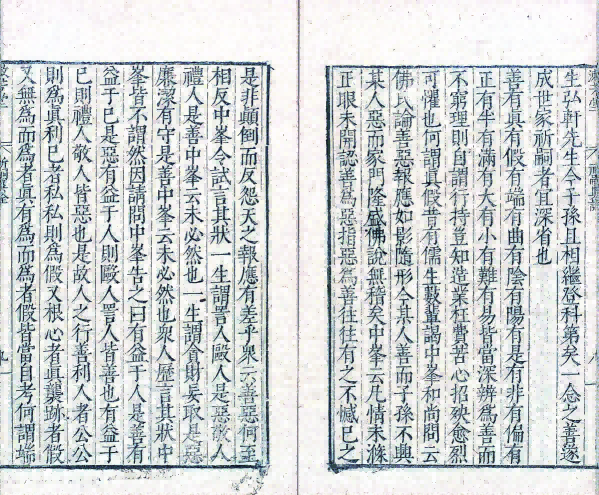 生弘軒先生今子孫且相繼登科第矣一念之善遂
成世家祈嗣者宜深省也
善有真有假有端有曲有陰有陽有是有非有偏有
正有半有滿有大有小有難有易皆當深辨為善而
不窮理則自謂行持豈知造業枉費苦心招殃愈烈
可懼也何謂真假昔有儒生數輩謁中峯和尚問云
佛氏論善惡報應如影隨形今其人善而子孫不興
某人惡而家門隆盛佛說無稽矣中峯云凡情未滌
正眼未開認善為惡指惡為善往往有之不憾已之
是非顛倒而反怨天之報應有差乎衆云善惡何至
相反中峯令試言其狀一生謂詈人毆人是惡敬人
禮人是善中峯云未必然也一生謂貪財妄取是惡
廉潔有守是善中峯云未必然也衆人歷言其狀中
峯皆不謂然因請問中峯告之曰有益于人是善有
益于已是惡有益于人則毆人詈人皆善也有益于
已則禮人敬人皆惡也是故人之行善利人者公公
則為真利已者私私則為假又根心者真襲跡者假
又無為而為者真有為而為者假皆當自考何謂端